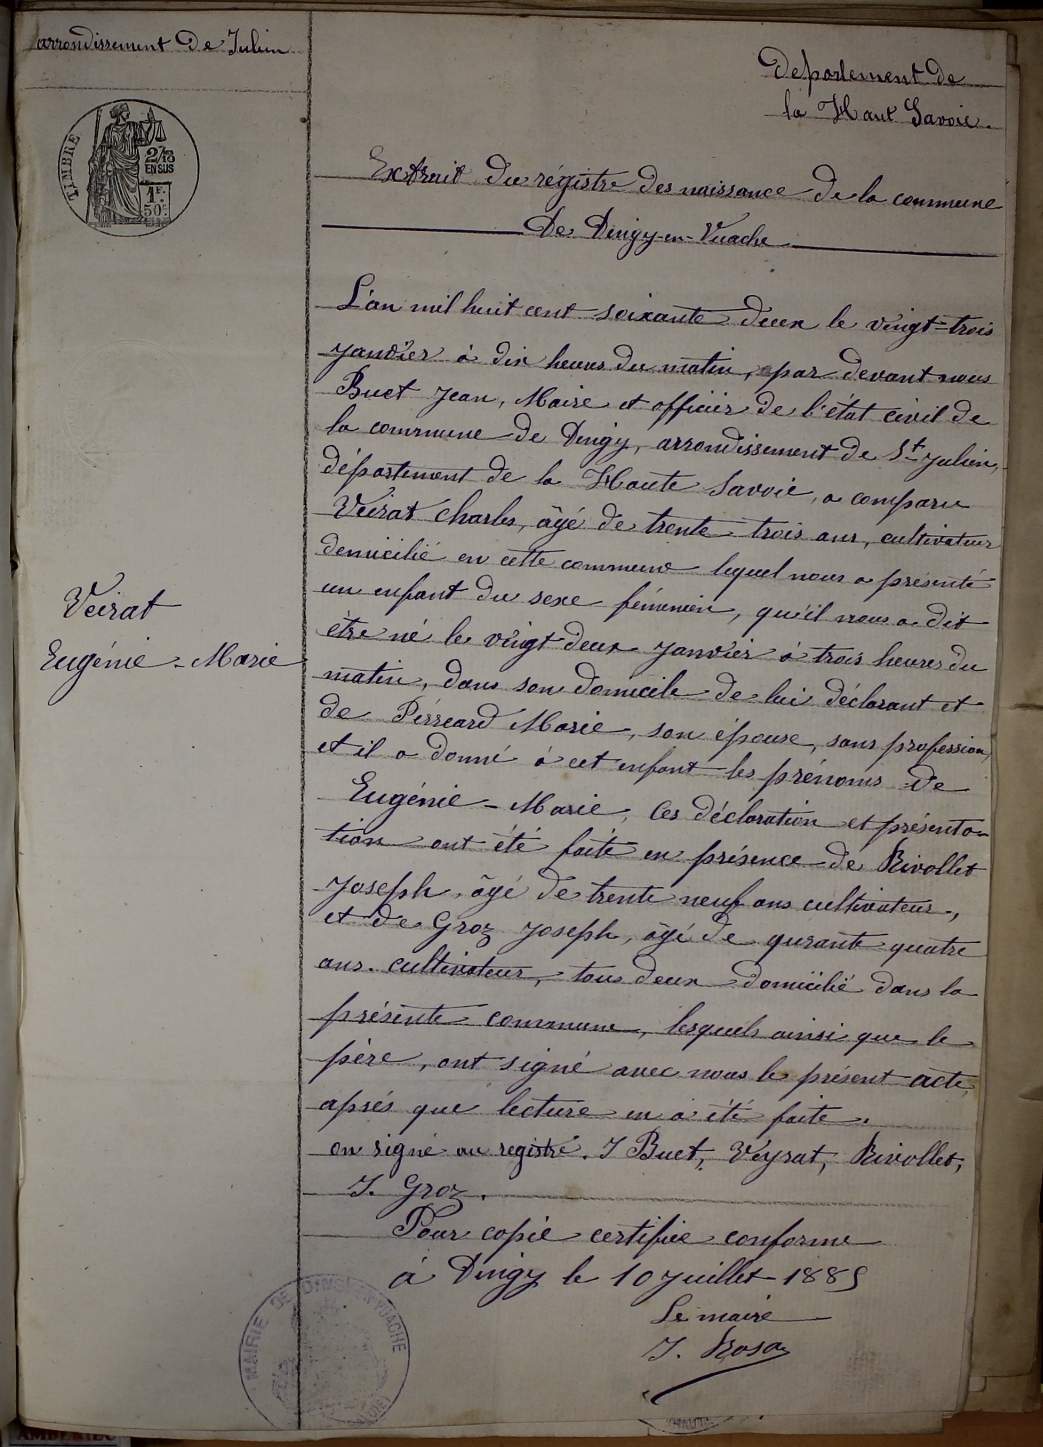 arrondissement De Julien
Departement de
la Haut Savoie.
TIMBRE
2/10
EN SUS
1F.
50c.
Extrait du régistre des naissance de la commune
De Dingy-en-Vuache
L'an mil huit cent soixante deux le vingt-trois
janvier à dix heures du matin, par devant nous
Buet Jean, Maire et officier de l'état civil de
la commune de Dingy, arrondissement de St Julien,
département de la Haute Savoie, a comparu
Veirat Charles, âgé de trente trois ans, cultivateur
demicilié en cette commune lequel nous a présenté
un enfant du sexe féminin, qu'il nous a dit
être né le vingt deux janvier à trois heures du
matin, dans son domicile de lui déclarant et
de Pérréard Marie, son épouse, sans profession,
et il a donné à cet enfant les prénoms de
Eugénie-Marie, Ces déclaration et présenta-
tion ont été faite en présence de Rivollet
Joseph, âgé de trente neuf ans cultivateur,
et de Groz Joseph, âgé de qurante quatre
ans. cultivateur, tous deux domicilié dans la
présente commune, lesquels ainsi que le
père, ont signé avec nous le présent acte
aprés que lecture en a été faite.
on signé au registre. J Buet, Veyrat, Rivollet,
J. Groz.
Pour copie certifiée conforme
à Dingy le 10 juillet 1885
Le maire
J. Rosa
Veirat
Eugénie-Marie
MAIRIE DE DINGY EN VUACHE